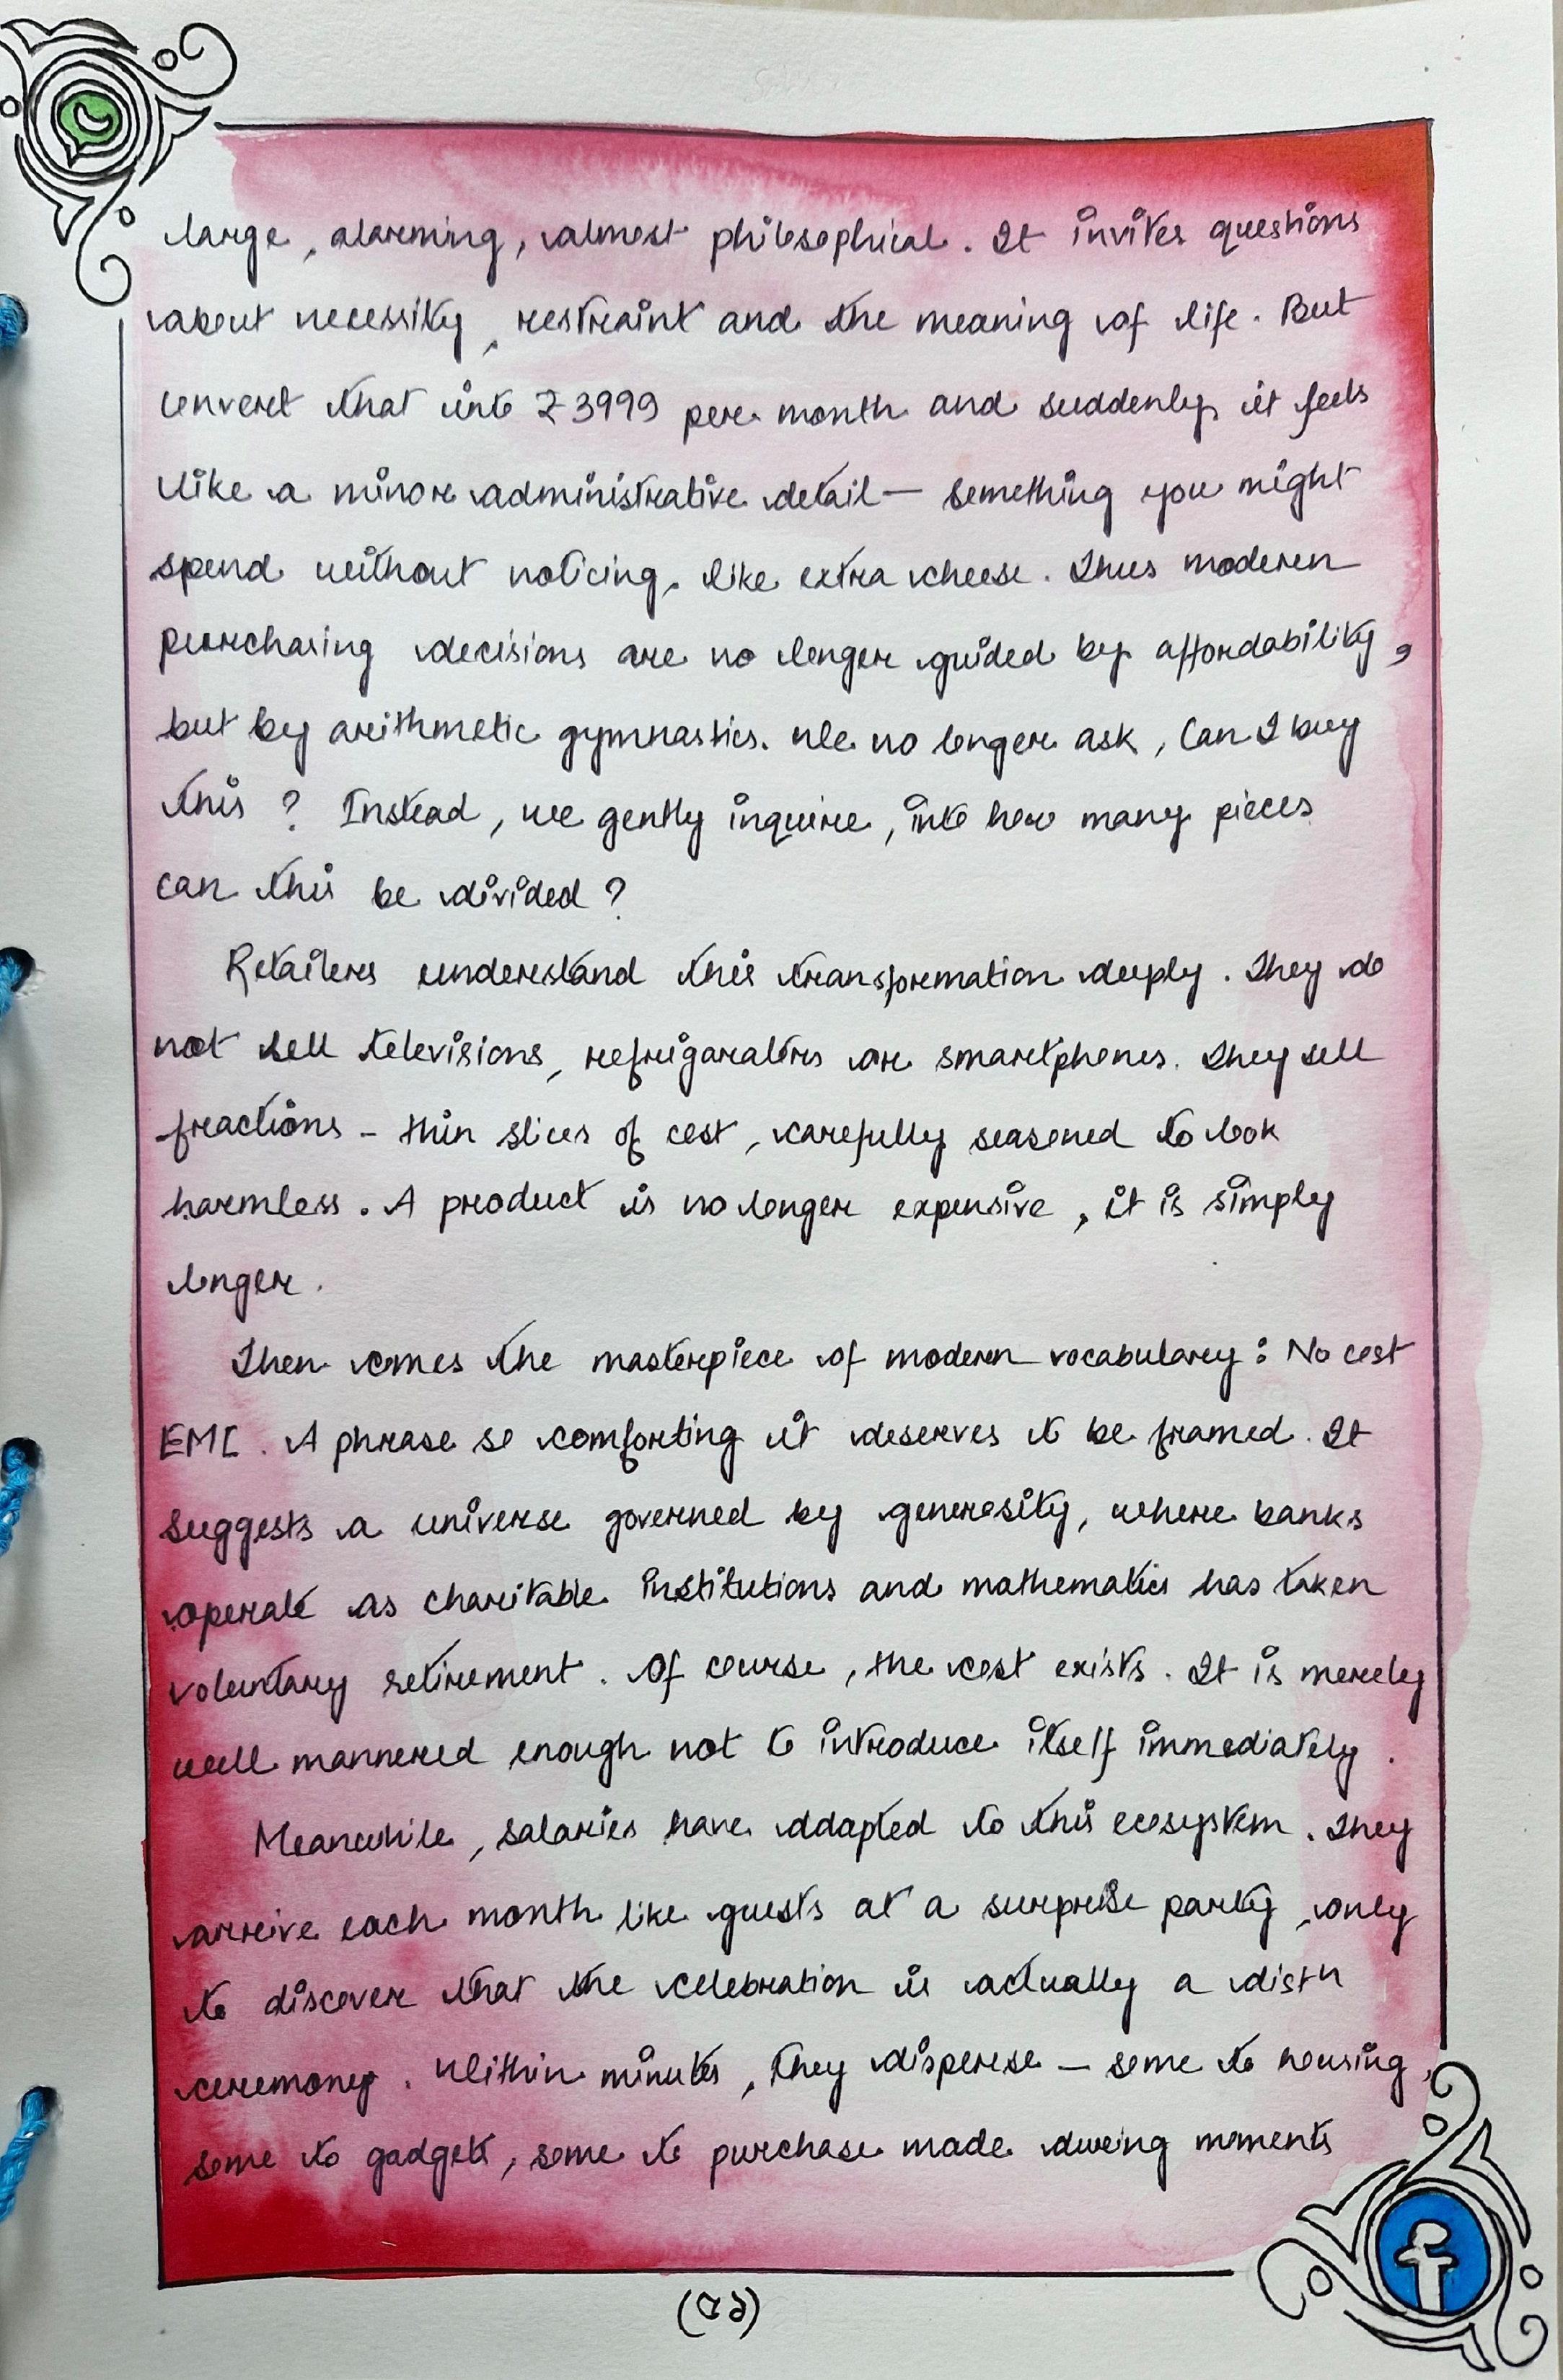 large, alarming, almost philosophical. It invites questions
about necessity, restraint and the meaning of life. But
convert that into ₹3999 per month and suddenly, it feels
like a minor administrative detail — something you might
spend without noticing, like extra cheese. Thus modern
purchasing decisions are no longer guided by affordability,
but by arithmetic gymnastics. We no longer ask, Can I buy
this? Instead, we gently inquire, into how many pieces
can this be divided?
Retailers understand this transformation deeply. They do
not sell televisions, refrigarators or smartphones. They sell
fractions - thin slices of cost, carefully seasoned to look
harmless. A product is no longer expensive, it is simply
longer.
Then comes the masterpiece of modern vocabulary: No cost
EMI. A phrase so comforting it deserves to be framed. It
suggests a universe governed by generosity, where banks
operate as charitable institutions and mathematics has taken
voluntary retirement. Of course, the cost exists. It is merely
well mannered enough not to introduce itself immediately.
Meanwhile, salaries have adapted to this ecosystem. They
arrive each month like guests at a surprise party, only
to discover that the celebration is actually a distn
ceremony. Within minutes, they disperse — some to housing,
some to gadgets, some to purchase made during moments